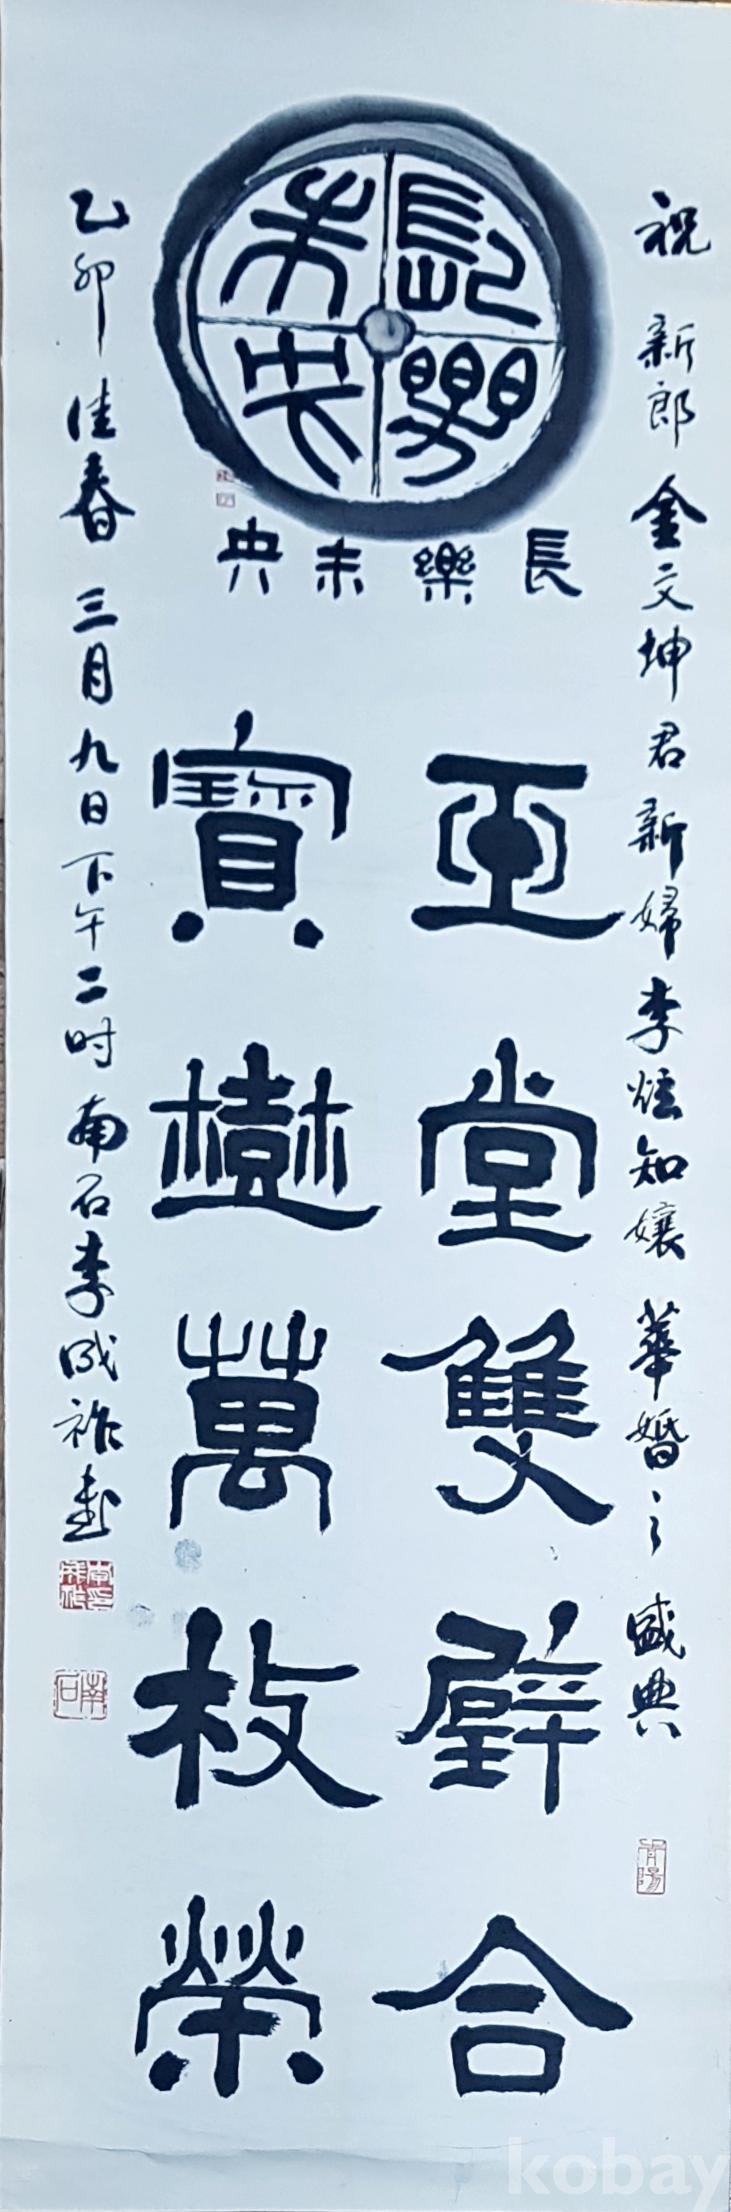 祝 新郎 金文坤君 新婦 李炫知孃 華婚之 盛典
長樂未央
長樂未央
玉堂雙璧合
寶樹萬枚榮
乙卯佳春 三月九日下午二时 南石 李成祚
南石
kobay